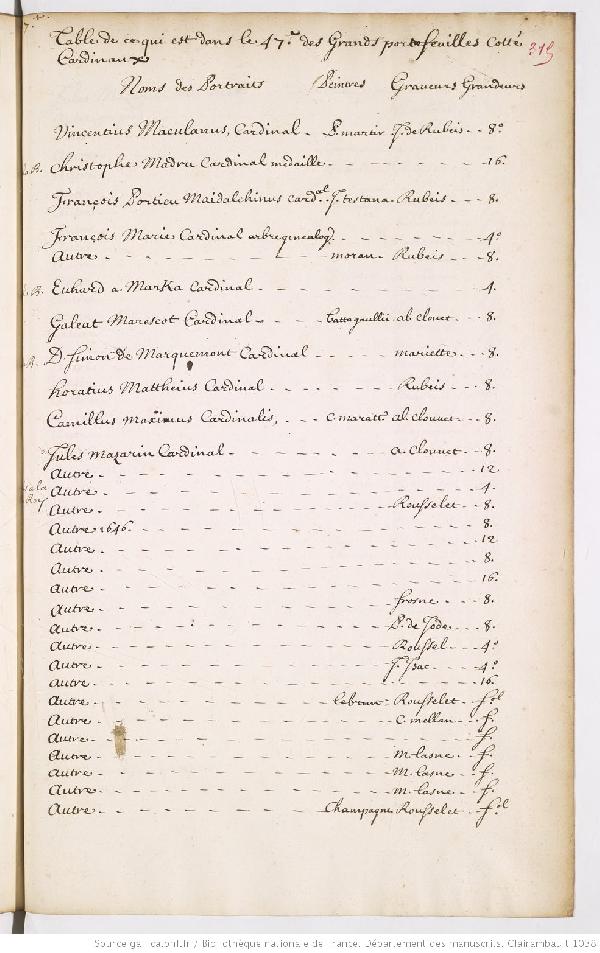 Table de ce qui est dans le 47.e des Grands portefeuilles Cotté 319
Cardinaux
Noms des Portraits Peintres Graveurs Grandeurs
Vincentius Maculanus, Cardinal - P. martir J. de Rubeis - - 8.o
Christophe Madru Cardinal medaille - - - - - - 16.
François Portieu Maidalchinus card.al J. testana - Rubeis - - - 8.
François Marie Cardinal arbregenealog. - - - - - - 4.o
Autre - - - - - - moran - Rubeis - - - 8.
Euhard a Marka Cardinal - - - - - - 4.
Galeat Marescot Cardinal - - - battagnullii al. Clouet - - - 8.
D. Simon de Marquemont Cardinal - - - - mariette - - 8.
horatius Mattheius Cardinal - - - - - - Rubeis - - 8.
Camillus maximus Cardinalis, - - - C. maratt al. Clouuet - - 8.
Jules Mazarin Cardinal - - - - - - a. Clouuet - - 8.
Autre - - - - - - 12
Autre - - - - - - 4.
Autre - - - - - - Rousselet - 8.
Autre 1646. - - - - - - 8.
Autre - - - - - - 12
Autre - - - - - - 8.
Autre - - - - - - 16.
Autre - - - - - - frosne - - 8.
Autre - - - - - - P. de Jode - - 8.
Autre - - - - - - Roussel - - 4.o
Autre - - - - - - J. Isac - - 4.o
Autre - - - - - - 16.
Autre - - - - - - lebrun - Rousselet - f.ol
Autre - - - - - - C. mellan - - f.
Autre - - - - - - f.
Autre - - - - - - m. lasne - - f.
Autre - - - - - - M. lasne - - f.
Autre - - - - - - m. lasne - - f.
Autre - - - - - - Champagne Rousselet - - f.ol
Source gallica.bnf.fr / Bibliothèque nationale de France. Département des manuscrits. Clairambault 1038